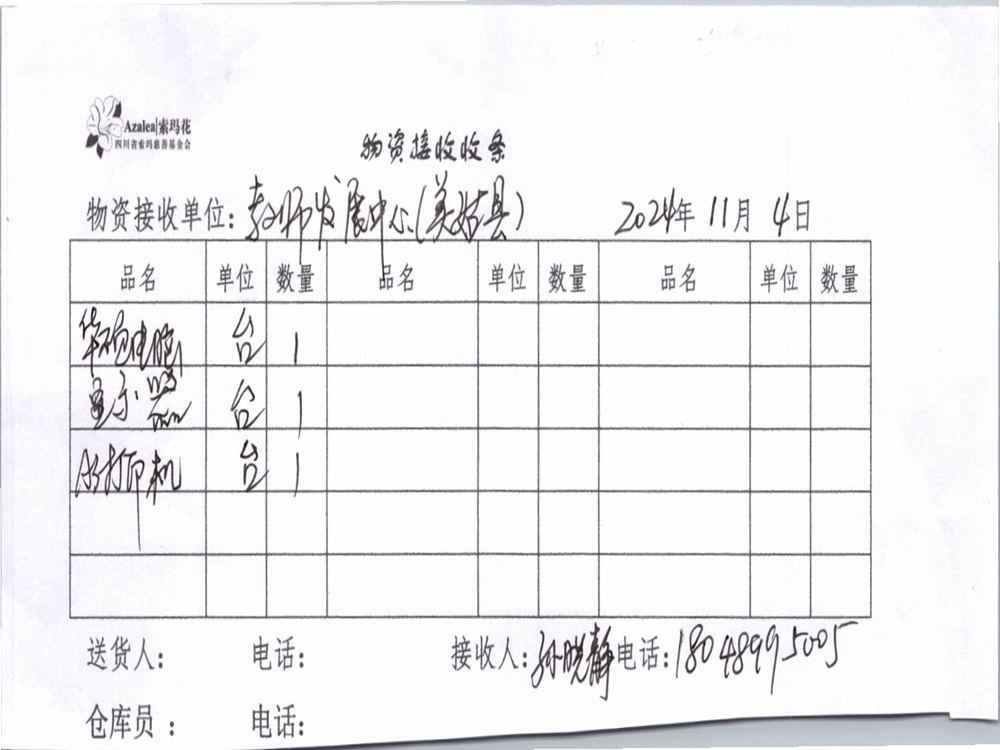 Azalea|索玛花
四川省索玛慈善基金会
物资接收收条
物资接收单位:教师发展中心(美姑县) 2024年 11月 4日
品名 单位 数量 品名 单位 数量 品名 单位 数量
华硕电脑 台 1
显示器 台 1
A3打印机 台 1
送货人: 电话: 接收人:孙晓静 电话:18048995005
仓库员 : 电话: